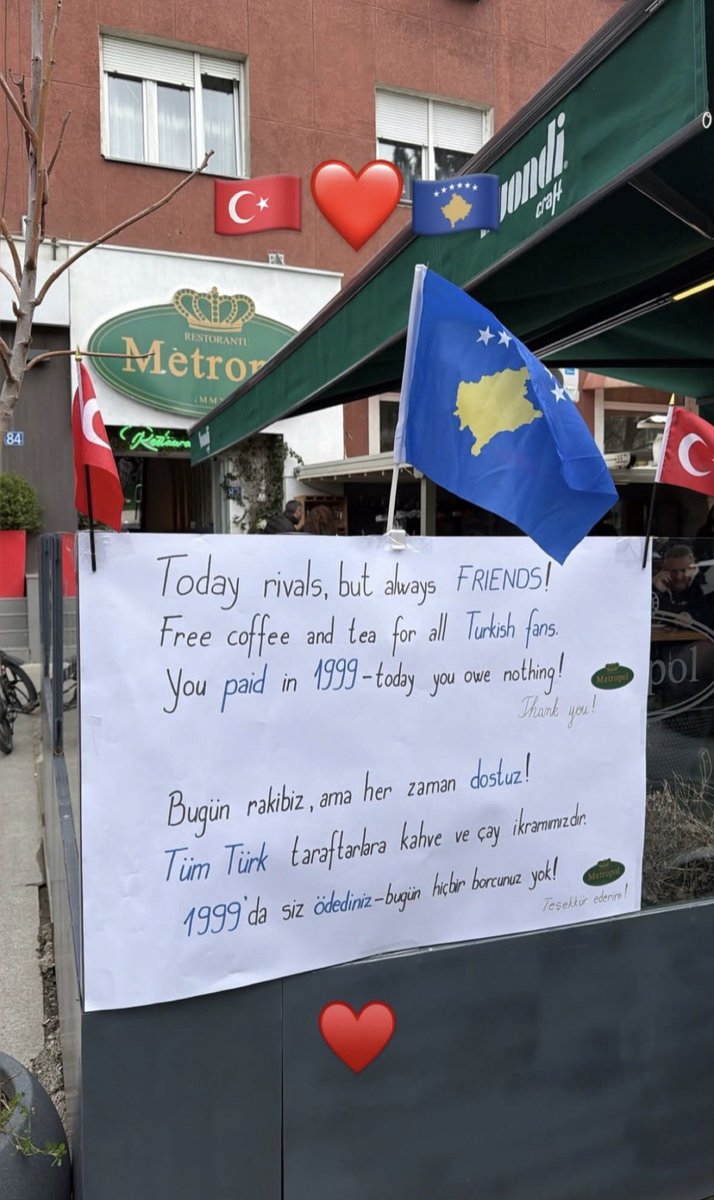 mondi
craft
RESTORANTI
Mètrop
MMX
Restaura
84
Today rivals, but always FRIENDS!
Free coffee and tea for all Turkish fans.
You paid in 1999 – today you owe nothing!
Metropol
Thank you!
pol
Bugün rakibiz, ama her zaman dostuz!
Tüm Türk taraftarlara kahve ve çay ikramımızdır.
1999'da siz ödediniz – bugün hiçbir borcunuz yok!
Metropol
Teşekkür ederim!